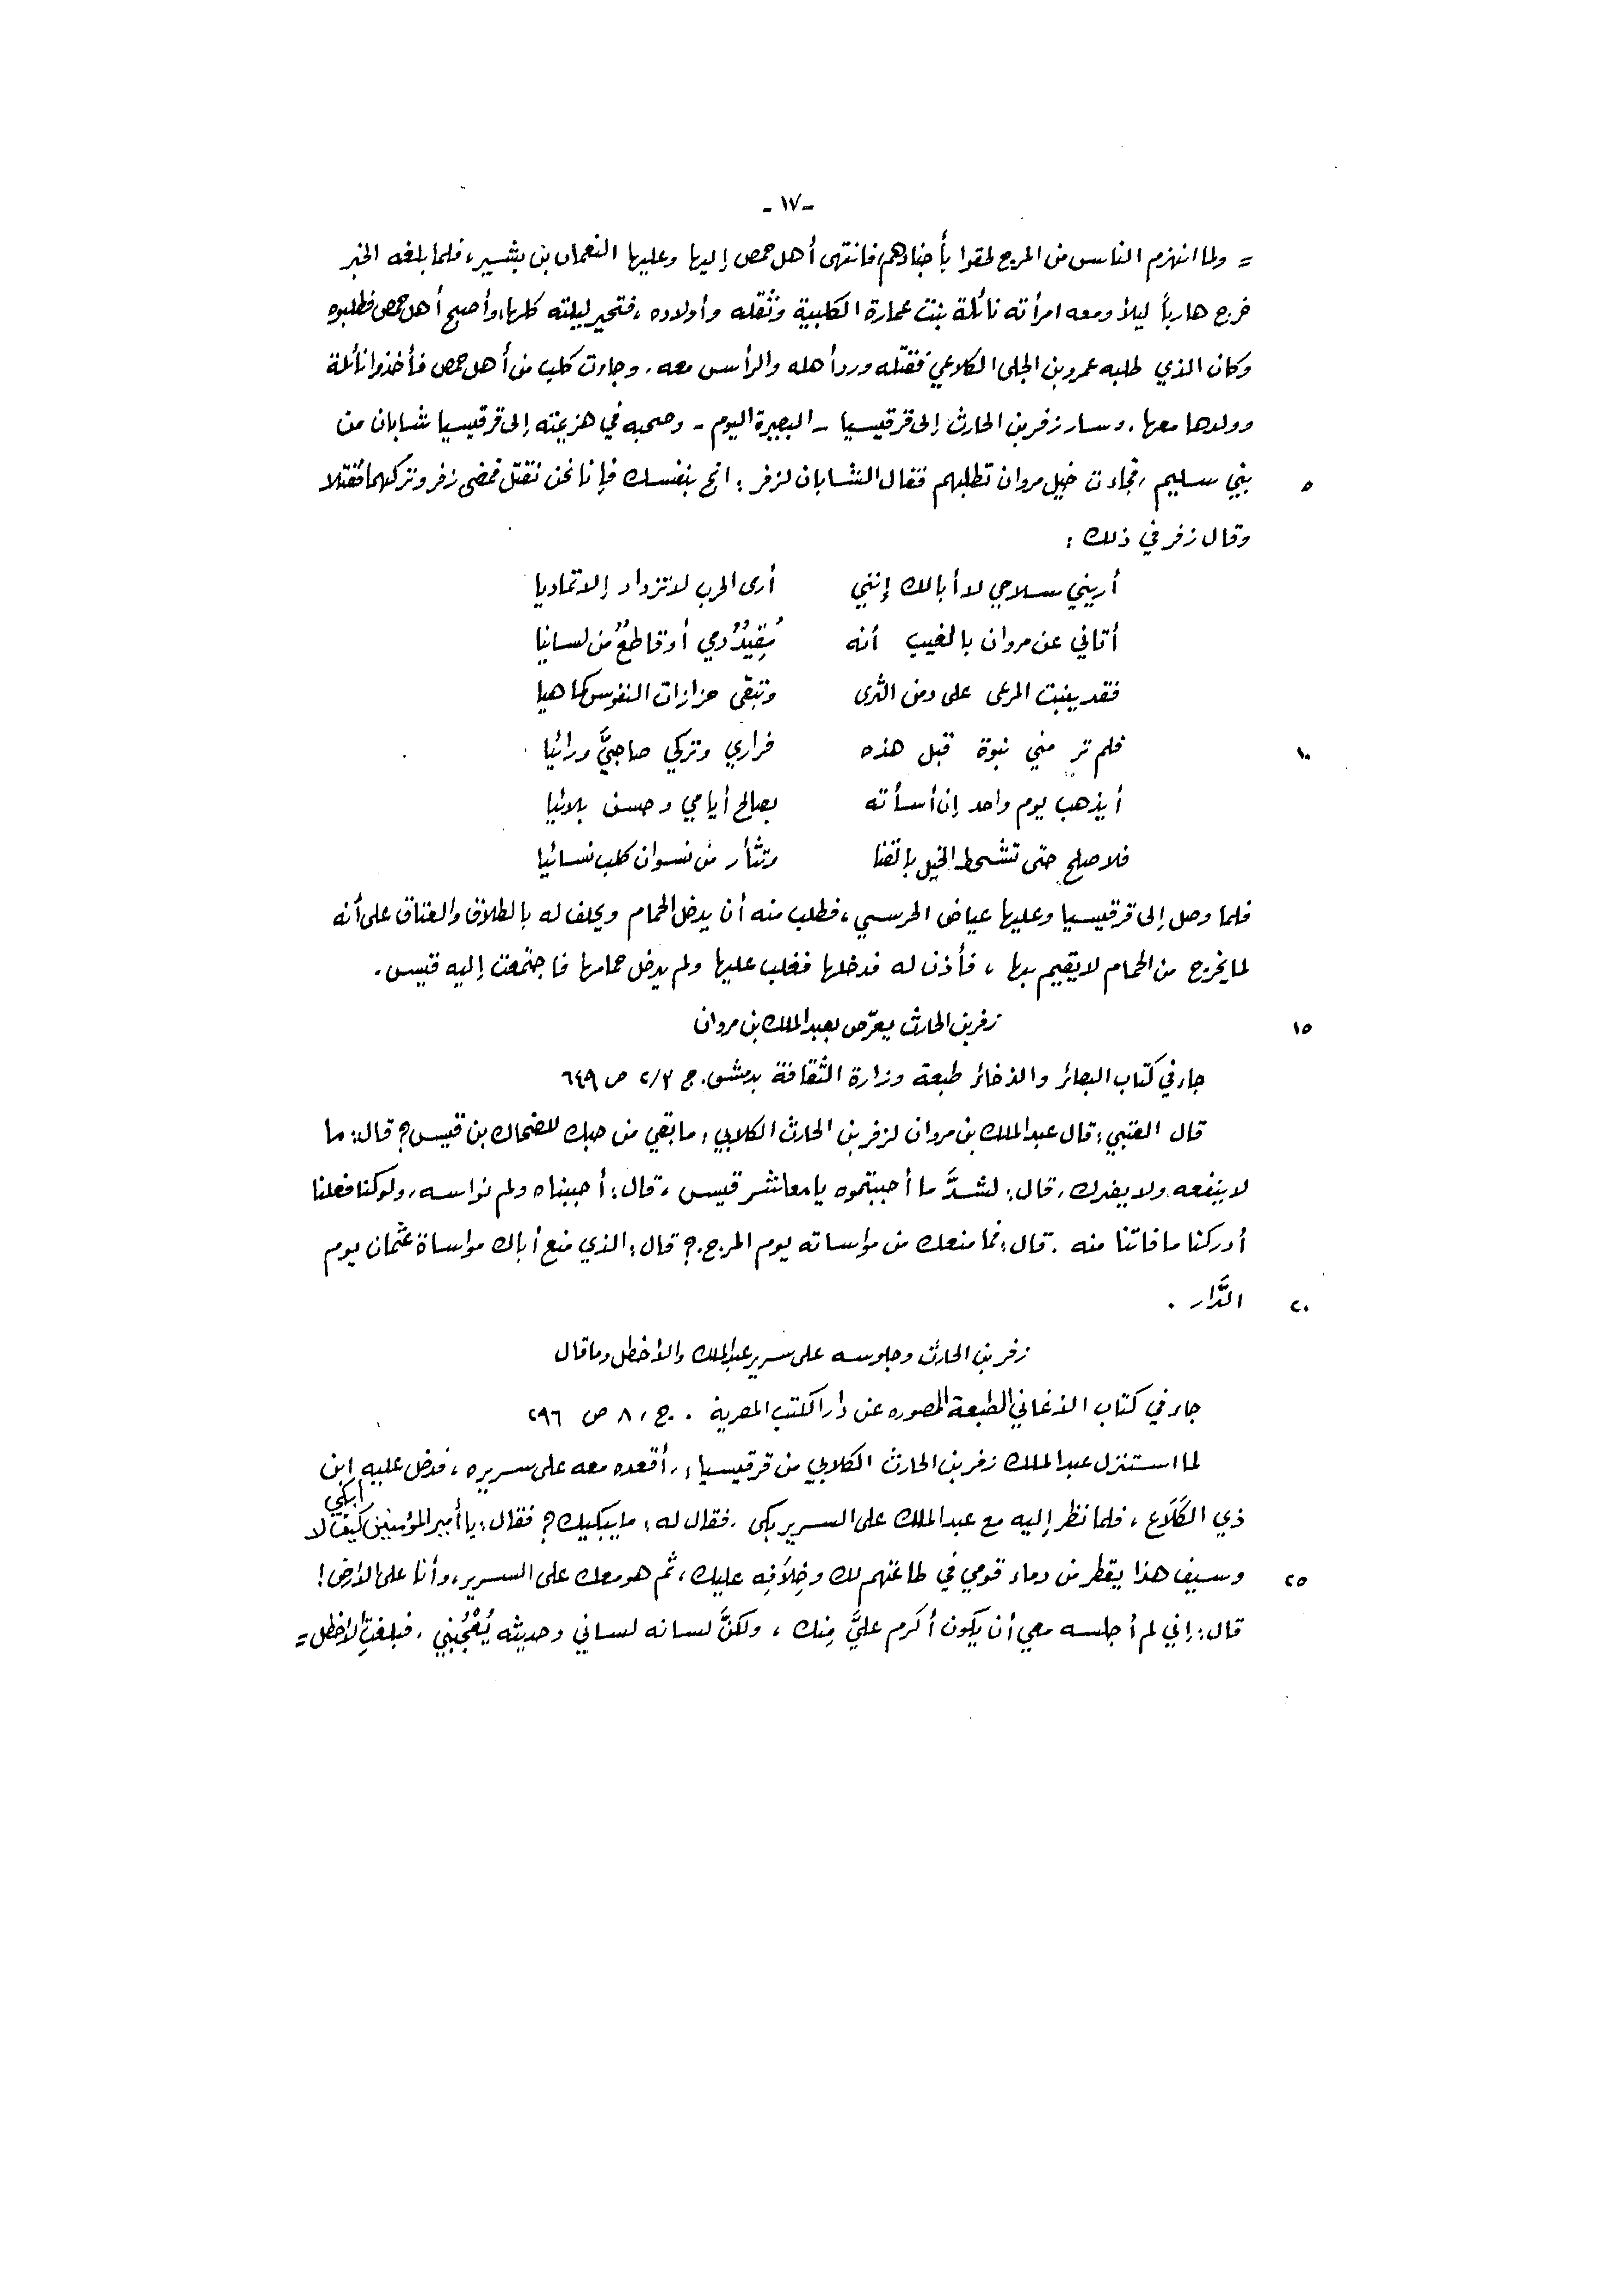 -١٧-
= ولما انهزم الناس من المرج لحقوا بأجنادهم، فانتهى أهل حمص إليها وعليها النعمان بن بشير، فلما بلغه الخبر
خرج هارباً ليلاً ومعه امرأته نائلة بنت عمارة الكلبية وثقله وأولاده، فتحير ليلته كلها، وأصبح أهل حمص فطلبوه
وكان الذي طلبه عمرو بن الجلي الكلاعي فقتله ورد أهله والرأس معه. وجاءت كلب من أهل حمص فأخذوا نائلة
وولدها معها. وسار زفر بن الحارث إلى قرقيسيا - البصيرة اليوم - وصحبه في هزيمته إلى قرقيسيا شابان من
٥ بني سليم، فجاءت خيل مروان تطلبهم فقال الشابان لزفر: انج بنفسك فإنا نحن نقتل فمضى زفر وتركهما فقتلا
وقال زفر في ذلك:
أريني سلاحي لا أبالك إنني أرى الحرب لا تزداد إلا تماديا
أتاني عن مروان بالغيب أنه مُقِيدٌ دمي أو قاطعٌ من لسانيا
فقد ينبت المرعى على دمن الثرى وتبقى حزازات النفوس كما هيا
١٠ فلم تر مني نبوة قبل هذه فراري وتركي صاحبيَّ ورائيا
أيذهب يوم واحد إن أسأته بصالح أيامي وحسن بلائيا
فلا صلح حتى تشحط الخيل بالقنا وتثأر من نسوان كلب نسائيا
فلما وصل إلى قرقيسيا وعليها عياض الحرسي، فطلب منه أن يدخل الحمام ويحلف له بالطلاق والعتاق على أنه
لما يخرج من الحمام لا يقيم بها، فأذن له فدخلها فغلب عليها ولم يدخل حمامها فاجتمعت إليه قيس.
١٥ زفر بن الحارث يعرّض بعبد الملك بن مروان
جاء في كتاب البصائر والذخائر طبعة وزارة الثقافة بدمشق. ج ٢/٣ ص ٦٤٩
قال العتبي: قال عبد الملك بن مروان لزفر بن الحارث الكلابي: ما بقي من حبك للضحاك بن قيس؟ قال: ما
لا ينفعه ولا يضرك، قال: لشدَّ ما أحببتموه يا معاشر قيس، قال: أحببناه ولم نواسه، ولو كنا فعلنا
أدركنا ما فاتنا منه. قال: فما منعك من مواساته يوم المرج.؟ قال: الذي منع أباك مواساة عثمان يوم
٢٠ الدَّار.
زفر بن الحارث وجلوسه على سرير عبد الملك والأخطل وما قال
جاء في كتاب الأغاني الطبعة المصوره عن دار الكتب المصرية. ج، ٨ ص ٢٩٦
لما استنزل عبد الملك زفر بن الحارث الكلابي من قرقيسياء، أقعده معه على سريره، فدخل عليه ابن
ذي الكَلَاع، فلما نظر إليه مع عبد الملك على السرير بكى. فقال له: ما يبكيك؟ فقال: يا أمير المؤمنين كيف لا أبكي
٢٥ وسيف هذا يقطر من دماء قومي في طاعتهم لك وخِلَافِه عليك، ثم هو معك على السرير، وأنا على الأرض!
قال: إني لم أجلسه معي أن يكون أكرم عليَّ مِنك، ولكنَّ لسانه لساني وحديثه يُعْجُبني. فبلغتِ الأخطل =